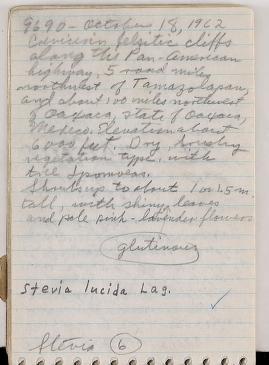 9690 - October 18, 1962
felsitic cliffs
along the Pan-American
highway, 5 road miles
northwest of Tamazulapan,
and about 100 miles northwest
of Oaxaca, State of Oaxaca,
Mexico. Elevation about
6000 feet. Dry, brushy
vegetation type, with
tree Ipomoeas.
Shrubs up to about 1 or 1.5 m.
tall, with shiny leaves
and pale pink-lavender flowers
Glutinous
Stevia lucida Lag.
Stevia 6